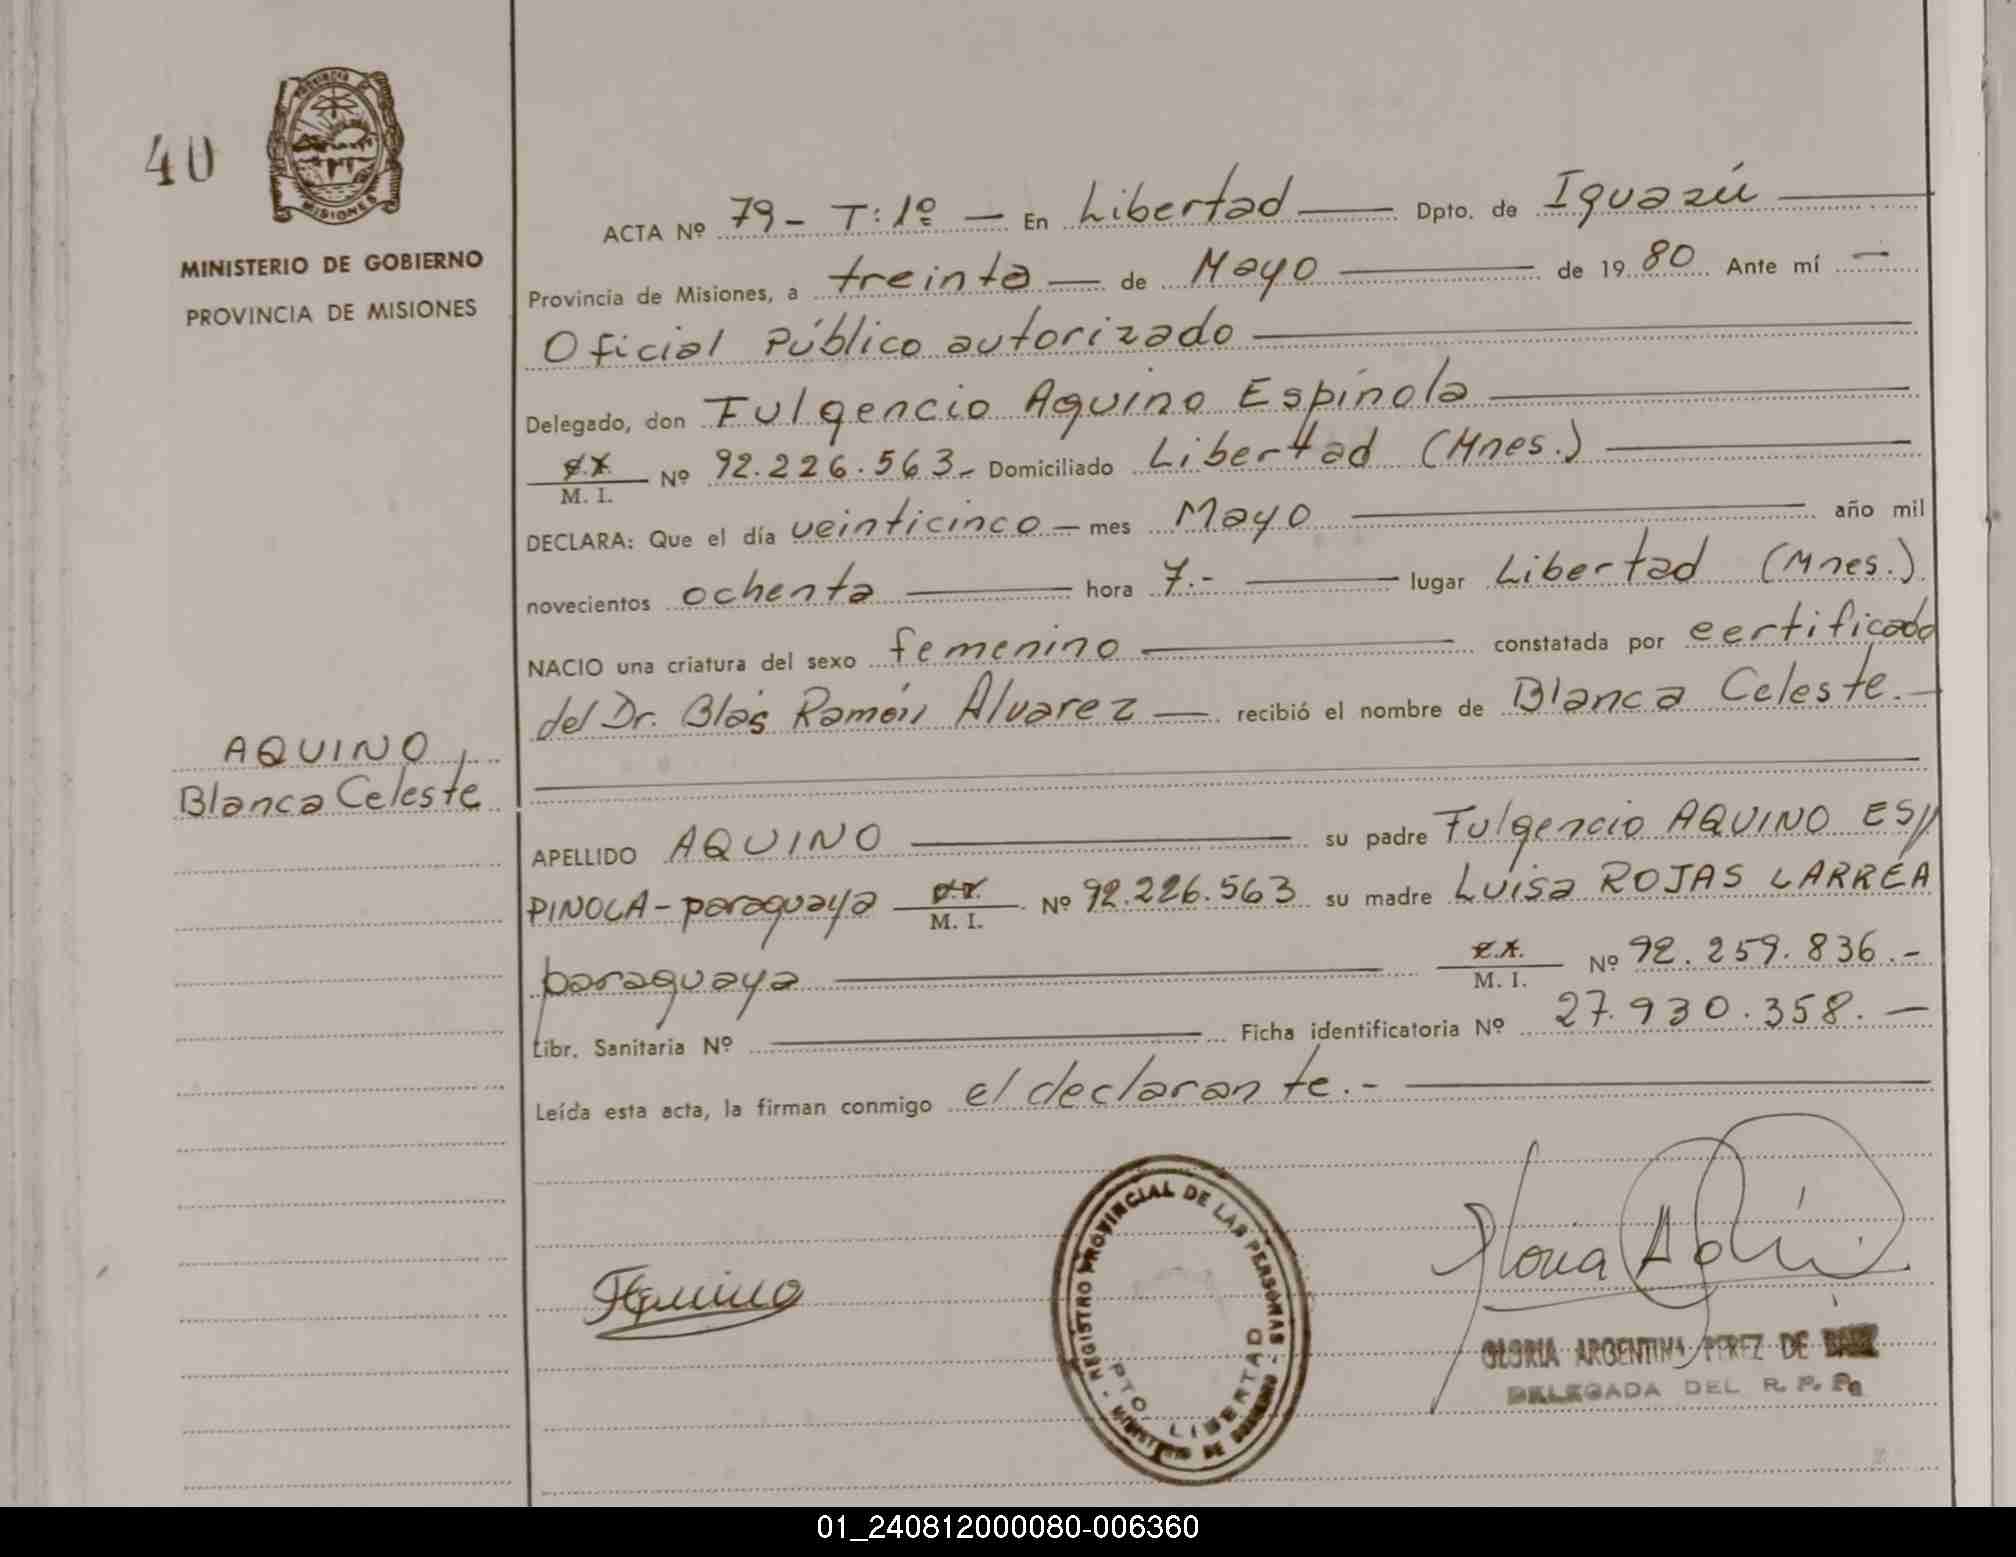 40
PROVINCIA DE
MISIONES
MINISTERIO DE GOBIERNO
PROVINCIA DE MISIONES
ACTA Nº 79 - T: 1º — En Libertad — Dpto. de Iguazú —
Provincia de Misiones, a treinta — de Mayo — de 1980 Ante mí —
Oficial Público autorizado —
Delegado, don Fulgencio Aquino Espínola —
M. I. Nº 92.226.563.- Domiciliado Libertad (Mnes.) —
DECLARA: Que el día veinticinco — mes Mayo — año mil
novecientos ochenta — hora 7.- — lugar Libertad (Mnes.)
NACIO una criatura del sexo femenino — constatada por certificado
del Dr. Blás Ramón Alvarez — recibió el nombre de Blanca Celeste.—
AQUINO
Blanca Celeste
APELLIDO AQUINO — su padre Fulgencio AQUINO ES//
PINOLA - paraguaya M. I. Nº 92.226.563 su madre Luisa ROJAS LARREA
paraguaya — M. I. Nº 92.259.836.-
Libr. Sanitaria Nº — Ficha identificatoria Nº 27.930.358.—
Leída esta acta, la firman conmigo el declarante.- —
REGISTRO PROVINCIAL DE LAS PERSONAS - MINISTERIO DE GOBIERNO -
PTO. LIBERTAD
Aquino
Gloria
GLORIA ARGENTINA PEREZ DE
DELEGADA DEL R. P. P.
01_240812000080-006360